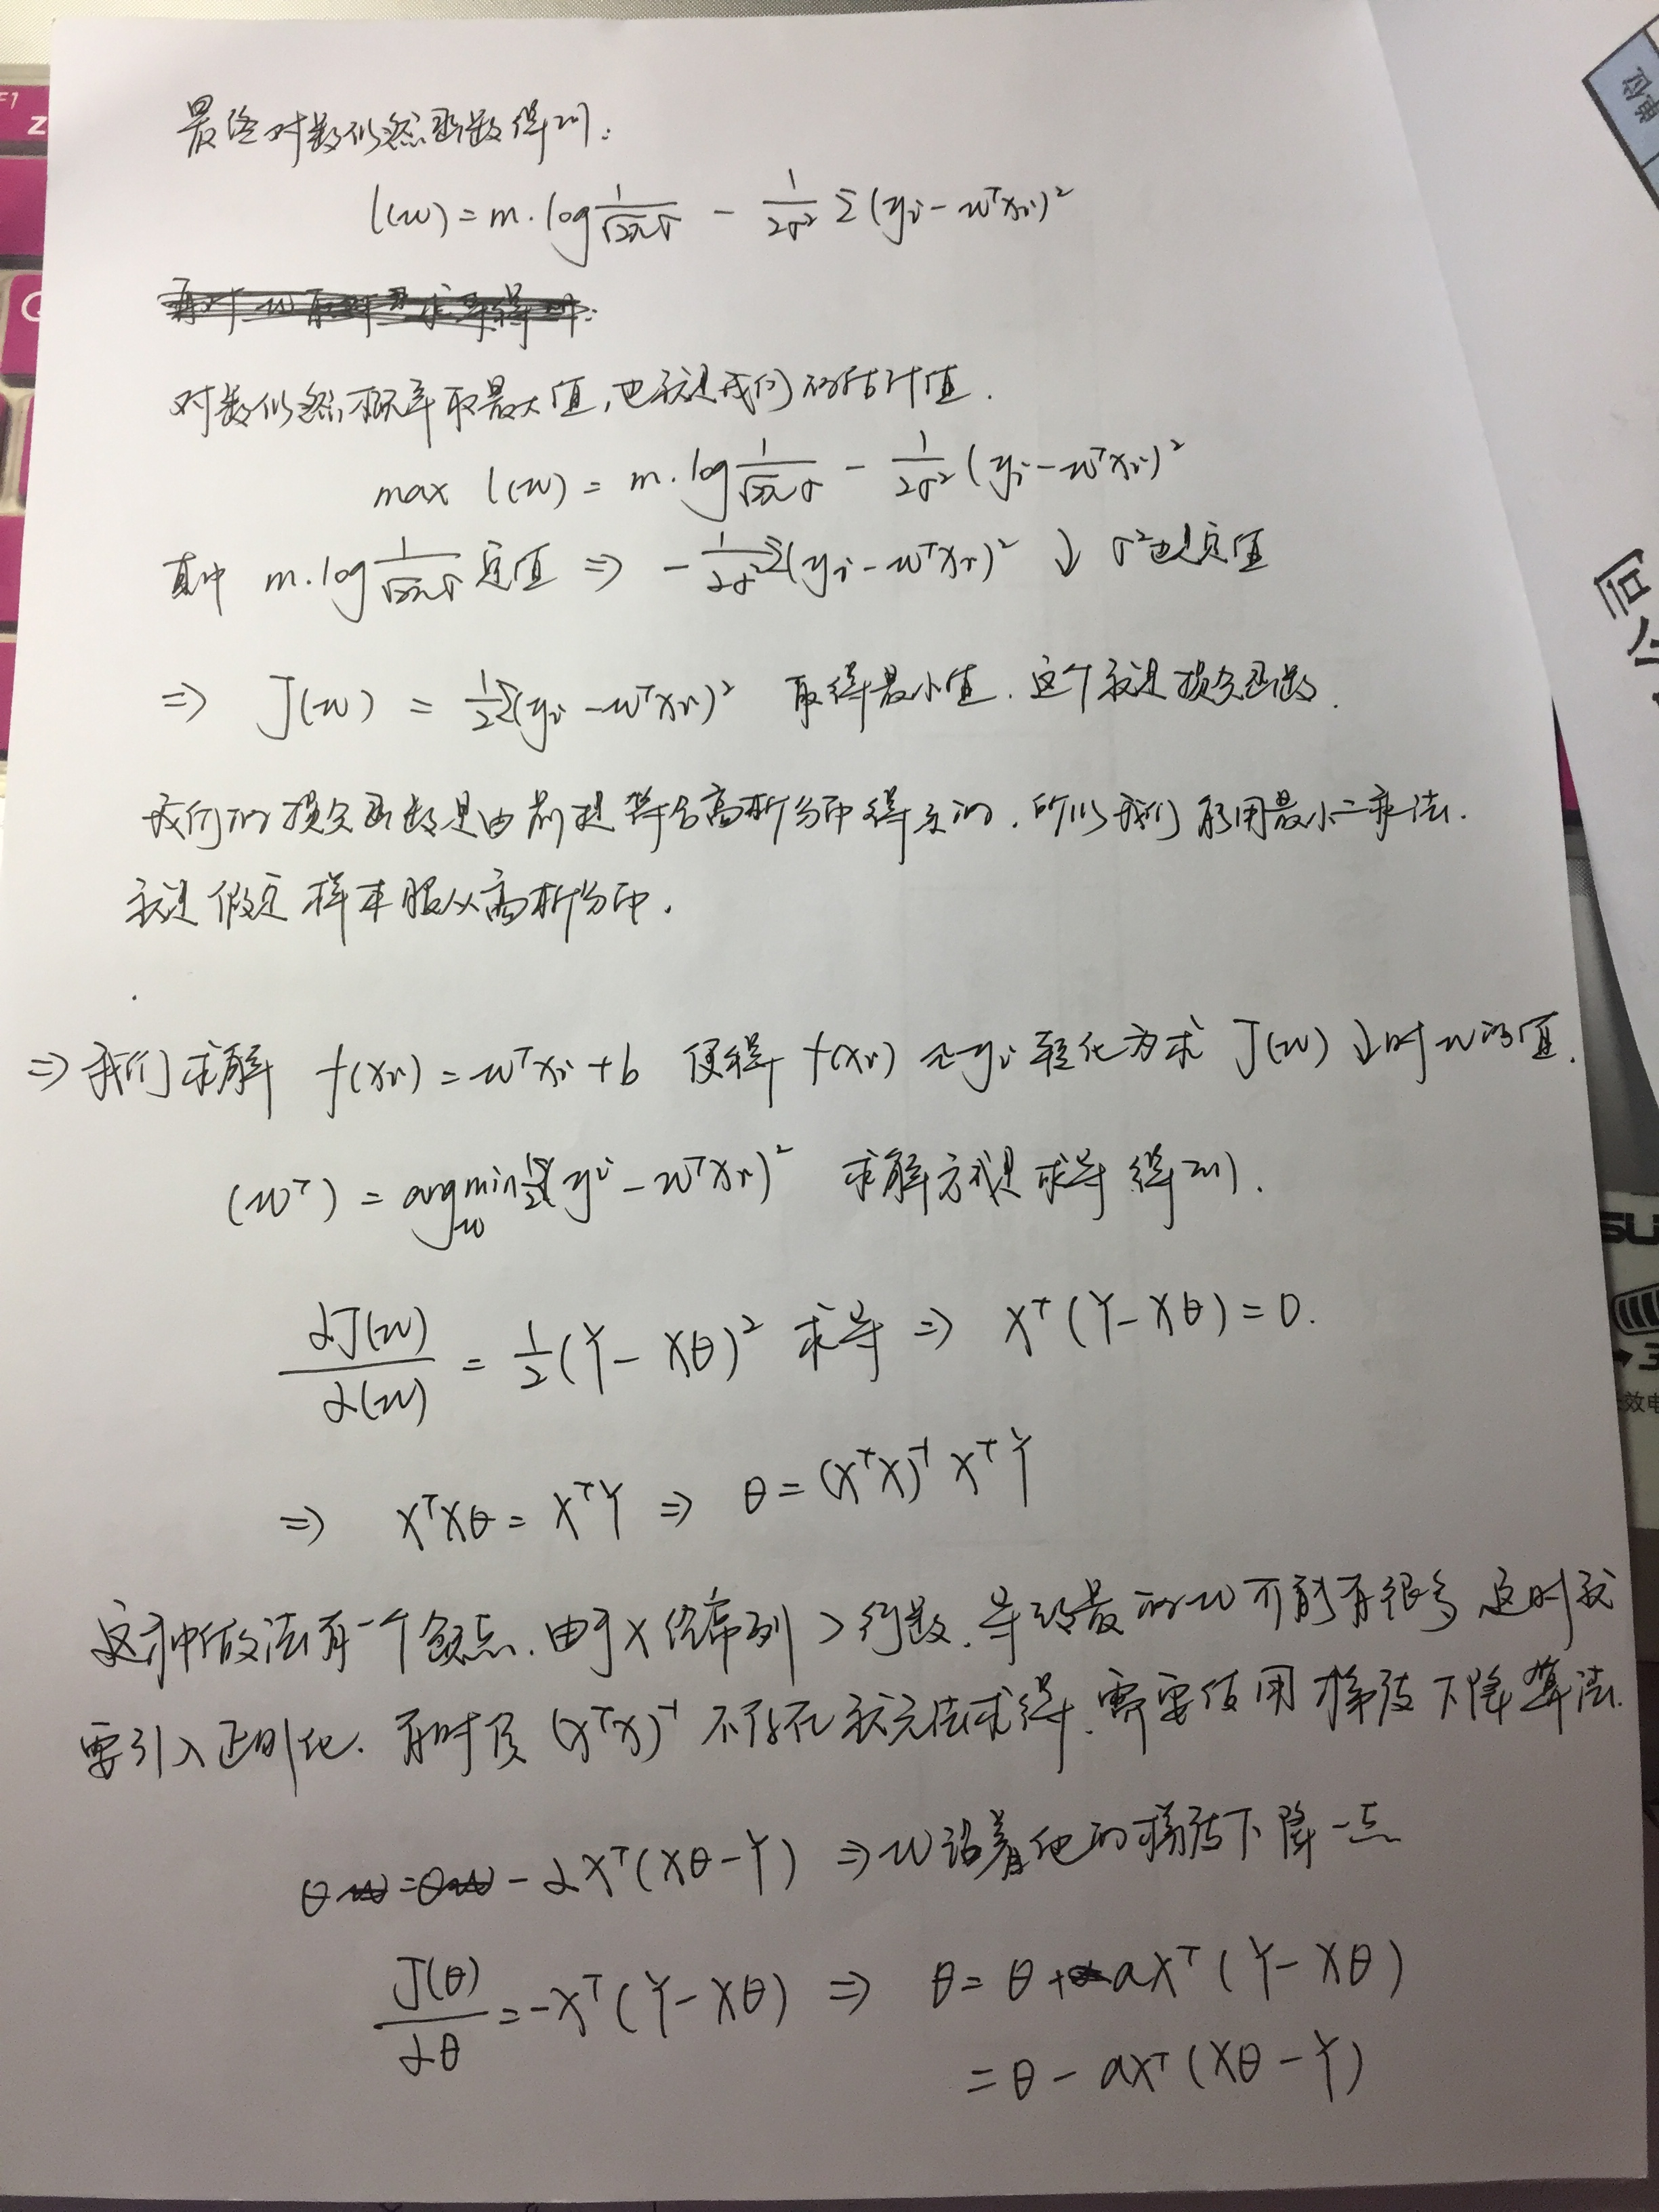 最终对数似然函数得到:
l(w) = m·log 1/(√2π σ) − 1/(2σ²) Σ(yi − wᵀxi)²
对数似然概率取最大值,也就是我们的估计值.
max l(w) = m·log 1/(√2π σ) − 1/(2σ²) (yi − wᵀxi)²
其中 m·log 1/(√2π σ) 定值 ⇒ − 1/(2σ²) Σ(yi − wᵀxi)² ↓ σ²也是定值
⇒ J(w) = ½Σ(yi − wᵀxi)² 取得最小值. 这个就是损失函数.
我们的损失函数是由前提符合高斯分布得来的. 所以我们能用最小二乘法.
就是假定样本服从高斯分布.
⇒ 我们求解 f(xi) = wᵀxi + b 使得 f(xi) ≃ yi 转化为求 J(w) ↓时 w的值.
(wᵀ) = argmin w ½Σ(yi − wᵀxi)² 求解方式是求导得到.
∂J(w)/∂(w) = ½(Y − Xθ)² 求导 ⇒ Xᵀ(Y − Xθ) = 0.
⇒ XᵀXθ = XᵀY ⇒ θ = (XᵀX)⁻¹XᵀY
这种做法有一个缺点. 由于X经常列 > 行数. 导致最的w可能有很多 这时就
要引入正则化. 有时候 (XᵀX)⁻¹ 不存在就无法求得. 需要使用梯度下降算法.
θ = θ − αXᵀ(Xθ − Y) ⇒ w沿着他的梯度下降一点
J(θ)/∂θ = −Xᵀ(Y − Xθ) ⇒ θ = θ + aXᵀ(Y − Xθ)
= θ − aXᵀ(Xθ − Y)
F1
Z
单位